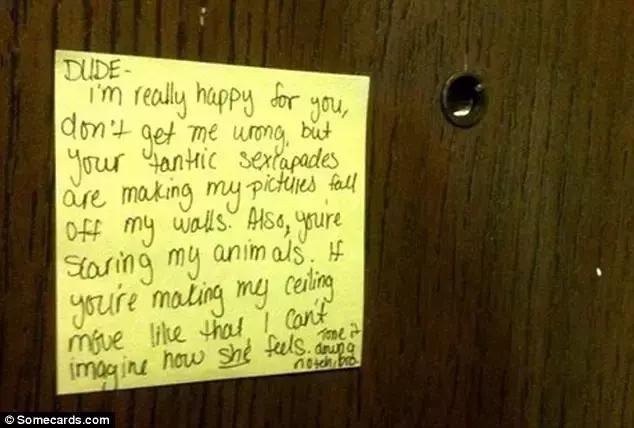 DUDE-
i'm really happy for you,
don't get me wrong, but
your tantric sexcapades
are making my pictures fall
off my walls. Also, you're
scaring my animals. If
you're making my ceiling
move like that I can't
imagine how she feels. Tone it
down a
notch, bro
© Somecards.com